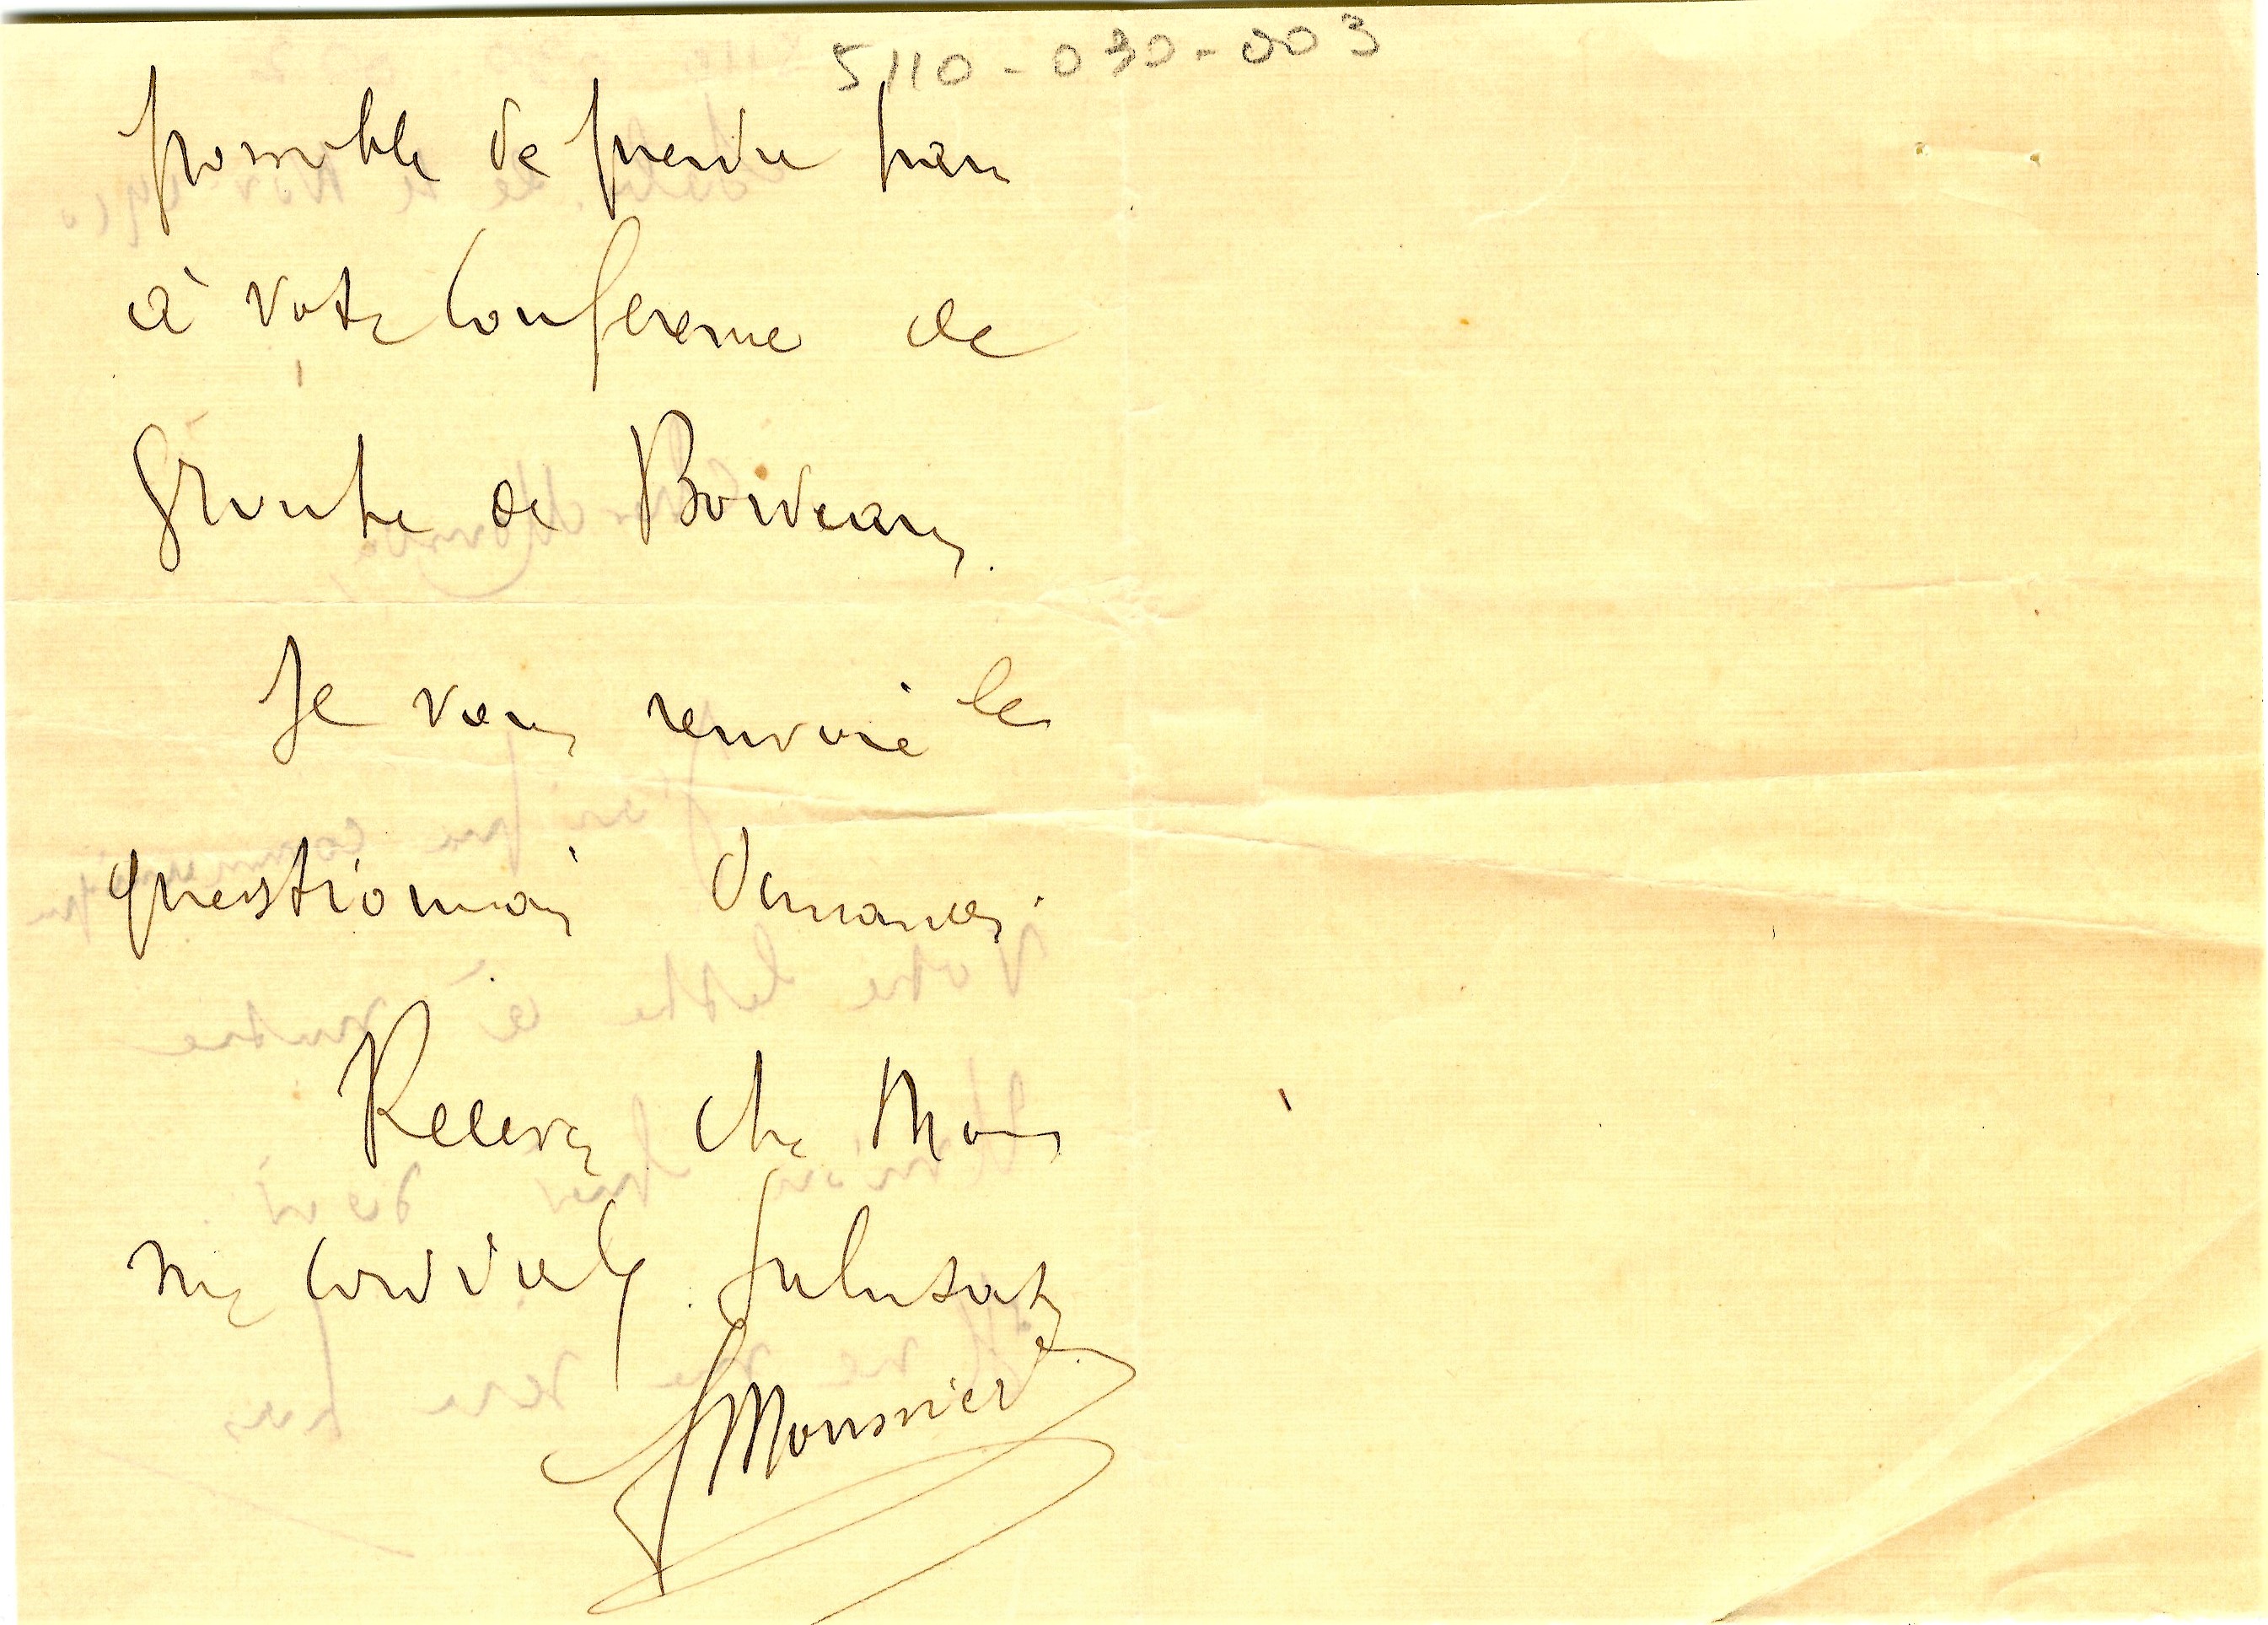 5110-030-003
possible de prendre part
à votre Conférence de
Gironde de Bordeaux.
Je vous renvoie les
questionnaires demandés.
Recevez cher Mons
mes cordiales salutat